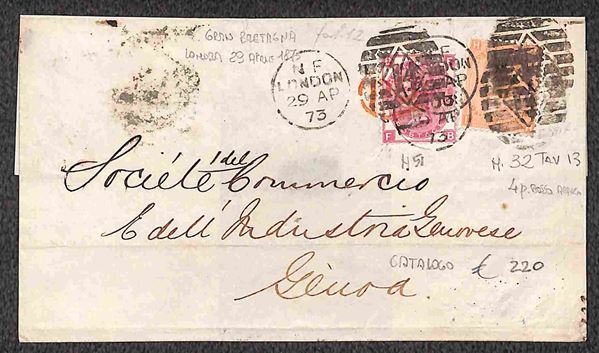 GRAN BRETAGNA
LONDRA 29 APRILE 1873
N F
LONDON
29 AP
73
F
LONDON
73
F B
H
Société del Commercio
E dell' Industria Genovese
Genoa.
M. 32 TAV 13
4 p. ROSSO
CATALOGO € 220